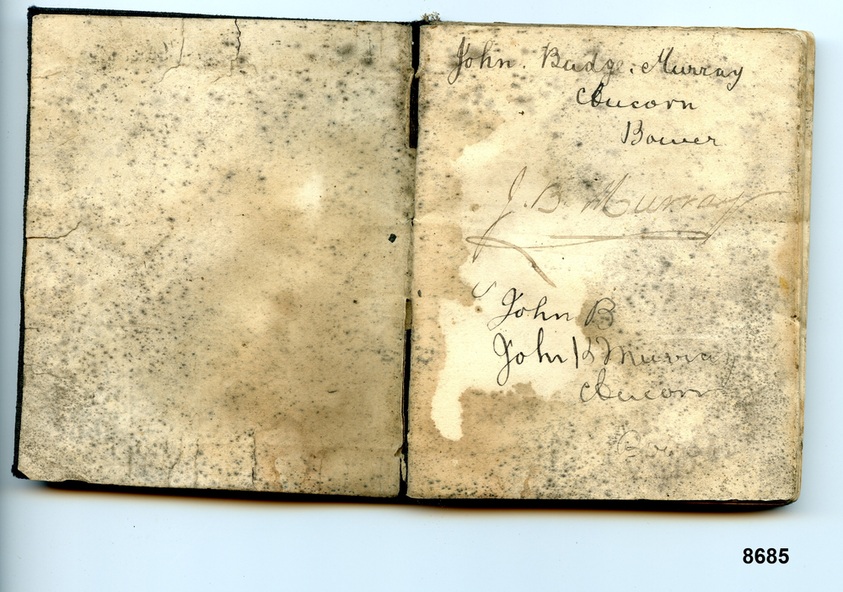 John. Budge. Murray
Aucorn
Bower
J. B. Murray
John B
John B Murray
Aucorn
8685